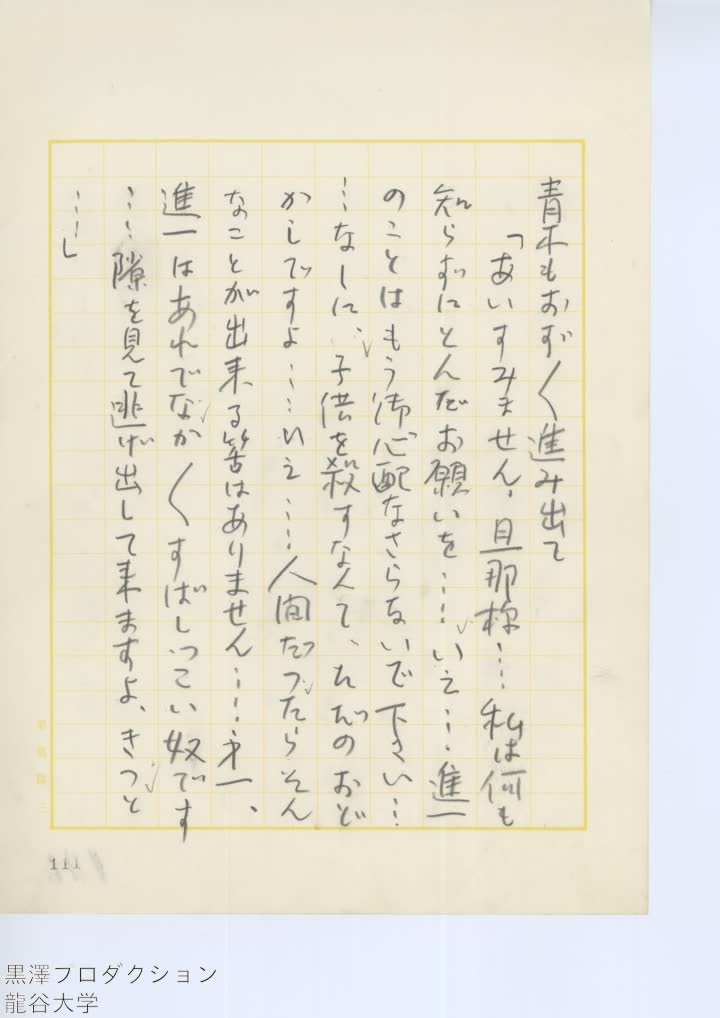 青木もおず〱進み出て
「あいすみません、旦那様…私は何も
知らずにとんだお願いを……いえ…進一
のことはもう御心配なさらないで下さい…
…なしに、子供を殺すなんて、たゞのおど
かしですよ……いえ……人間だつたらそん
なことが出来る筈はありません……才一、
進一はあれでなか〱すばしっこい奴です
……隙を見て逃げ出して来ますよ、きつと
……」
111
黒澤プロダクション
龍谷大学